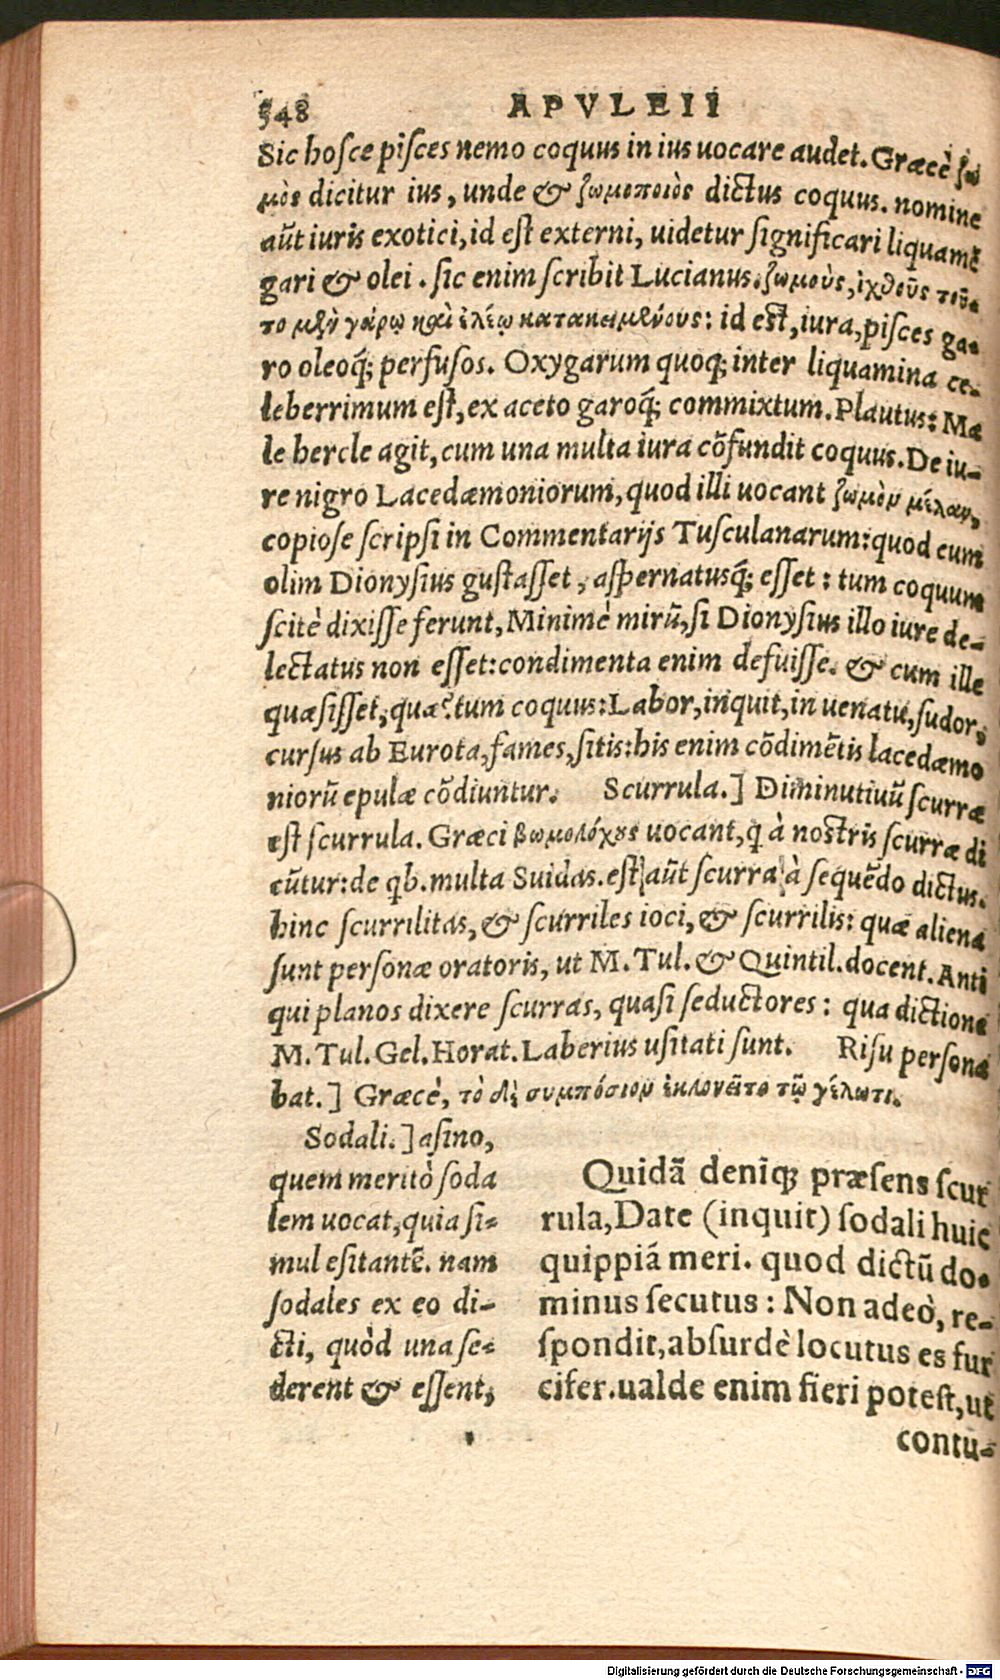 548 APVLEII
Sic hosce pisces nemo coquus in ius uocare audet. Græcè ζω
μὸς dicitur ius, unde & ζωμοποιὸς dictus coquus. nomine
aūt iuris exotici, id est externi, uidetur significari liquamē
gari & olei. sic enim scribit Lucianus. ζωμοὺς, ἰχθῦς τοῦ-
το μὲν γάρῳ καὶ ἐλέῳ κατακειμένους: id est, iura, pisces ga-
ro oleoq́; perfusos. Oxygarum quoq; inter liquamina ce-
leberrimum est, ex aceto garoq́; commixtum. Plautus: Ma
le hercle agit, cum una multa iura cōfundit coquus. De iu-
re nigro Lacedæmoniorum, quod illi uocant ζωμὸν μέλαν,
copiose scripsi in Commentarijs Tusculanarum: quod cum
olim Dionysius gustasset, aspernatusq́; esset: tum coquum
scitè dixisse ferunt, Minimè mirū, si Dionysius illo iure de-
lectatus non esset: condimenta enim defuisse. & cum ille
quæsisset, quæ? tum coquus: Labor, inquit, in uenatu, sudor,
cursus ab Eurota, fames, sitis: his enim cōdimētis lacedæmo
niorū epulæ cōdiuntur. Scurrula.] Diminutiuū scurræ
est scurrula. Græci βωμολόχους uocant, q à nostris scurræ di
cūtur: de qb. multa Suidas. est aūt scurra à sequēdo dictus.
hinc scurrilitas, & scurriles ioci, & scurrilis: quæ aliena
sunt personæ oratoris, ut M. Tul. & Quintil. docent. Anti
qui planos dixere scurras, quasi seductores: qua dictione
M. Tul. Gel. Horat. Laberius usitati sunt. Risu persona
bat.] Græcè, τὸ δὲ συμπόσιον ἐκλονεῖτο τῷ γέλωτι.
Sodali.] asino,
quem meritò soda
lem uocat, quia si-
mul esitantē. nam
sodales ex eo di-
cti, quòd una se-
derent & essent,
Quidā deniq; præsens scur
rula, Date (inquit) sodali huic
quippiā meri. quod dictū do-
minus secutus: Non adeò, re-
spondit, absurdè locutus es fur
cifer. ualde enim fieri potest, ut
contu-
Digitalisierung gefördert durch die Deutsche Forschungsgemeinschaft - DFG